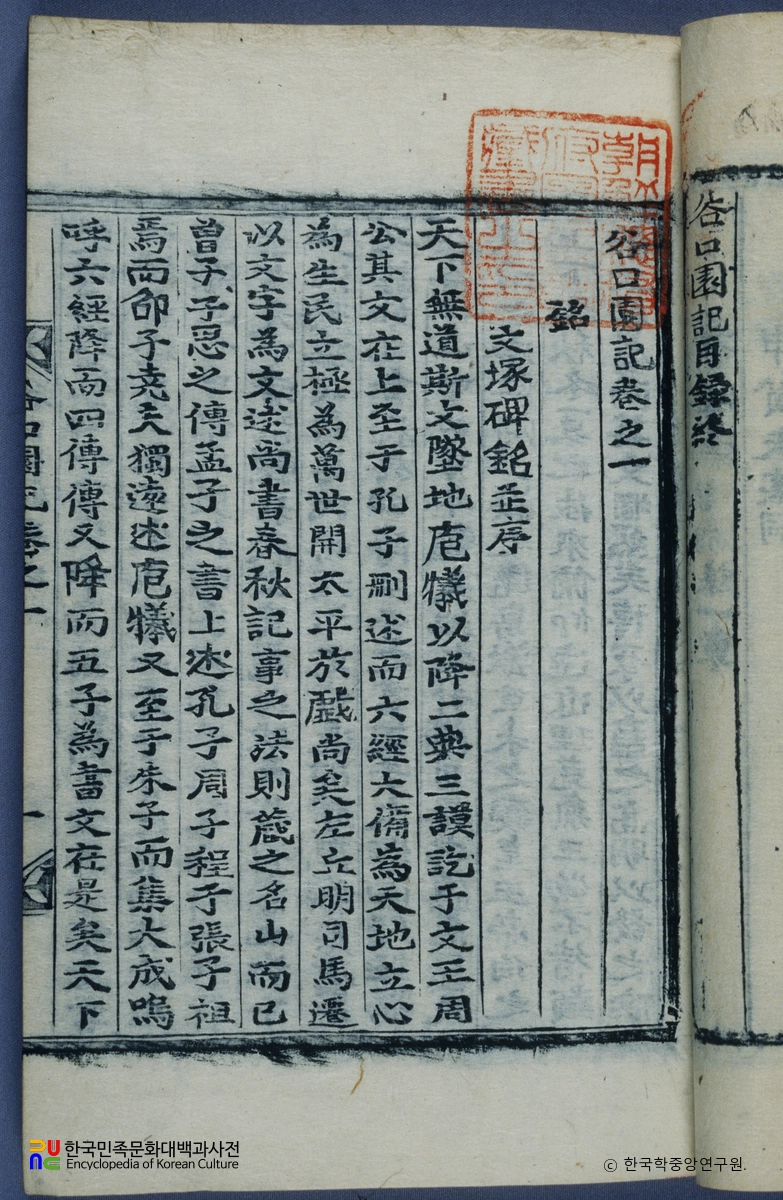 谷口園記目録終
谷口園記卷之一
銘
文塚碑銘並序
天下無道斯文墜地庖犧以降二典三謨訖于文王周
公其文在上至于孔子刪述而六經大備爲天地立心
為生民立極為萬世開太平於戲尚矣左丘明司馬遷
以文字為文述尚書春秋記事之法則蔵之名山而已
曽子子思之傳孟子之書上述孔子周子程子張子祖
焉而邵子堯夫獨遠述庖犧又至于朱子而集大成嗚
呼六經降而四傳傳又降而五子為書文在是矣天下
谷口園記卷之一
一
한국민족문화대백과사전
Encyclopedia of Korean Culture
ⓒ 한국학중앙연구원.